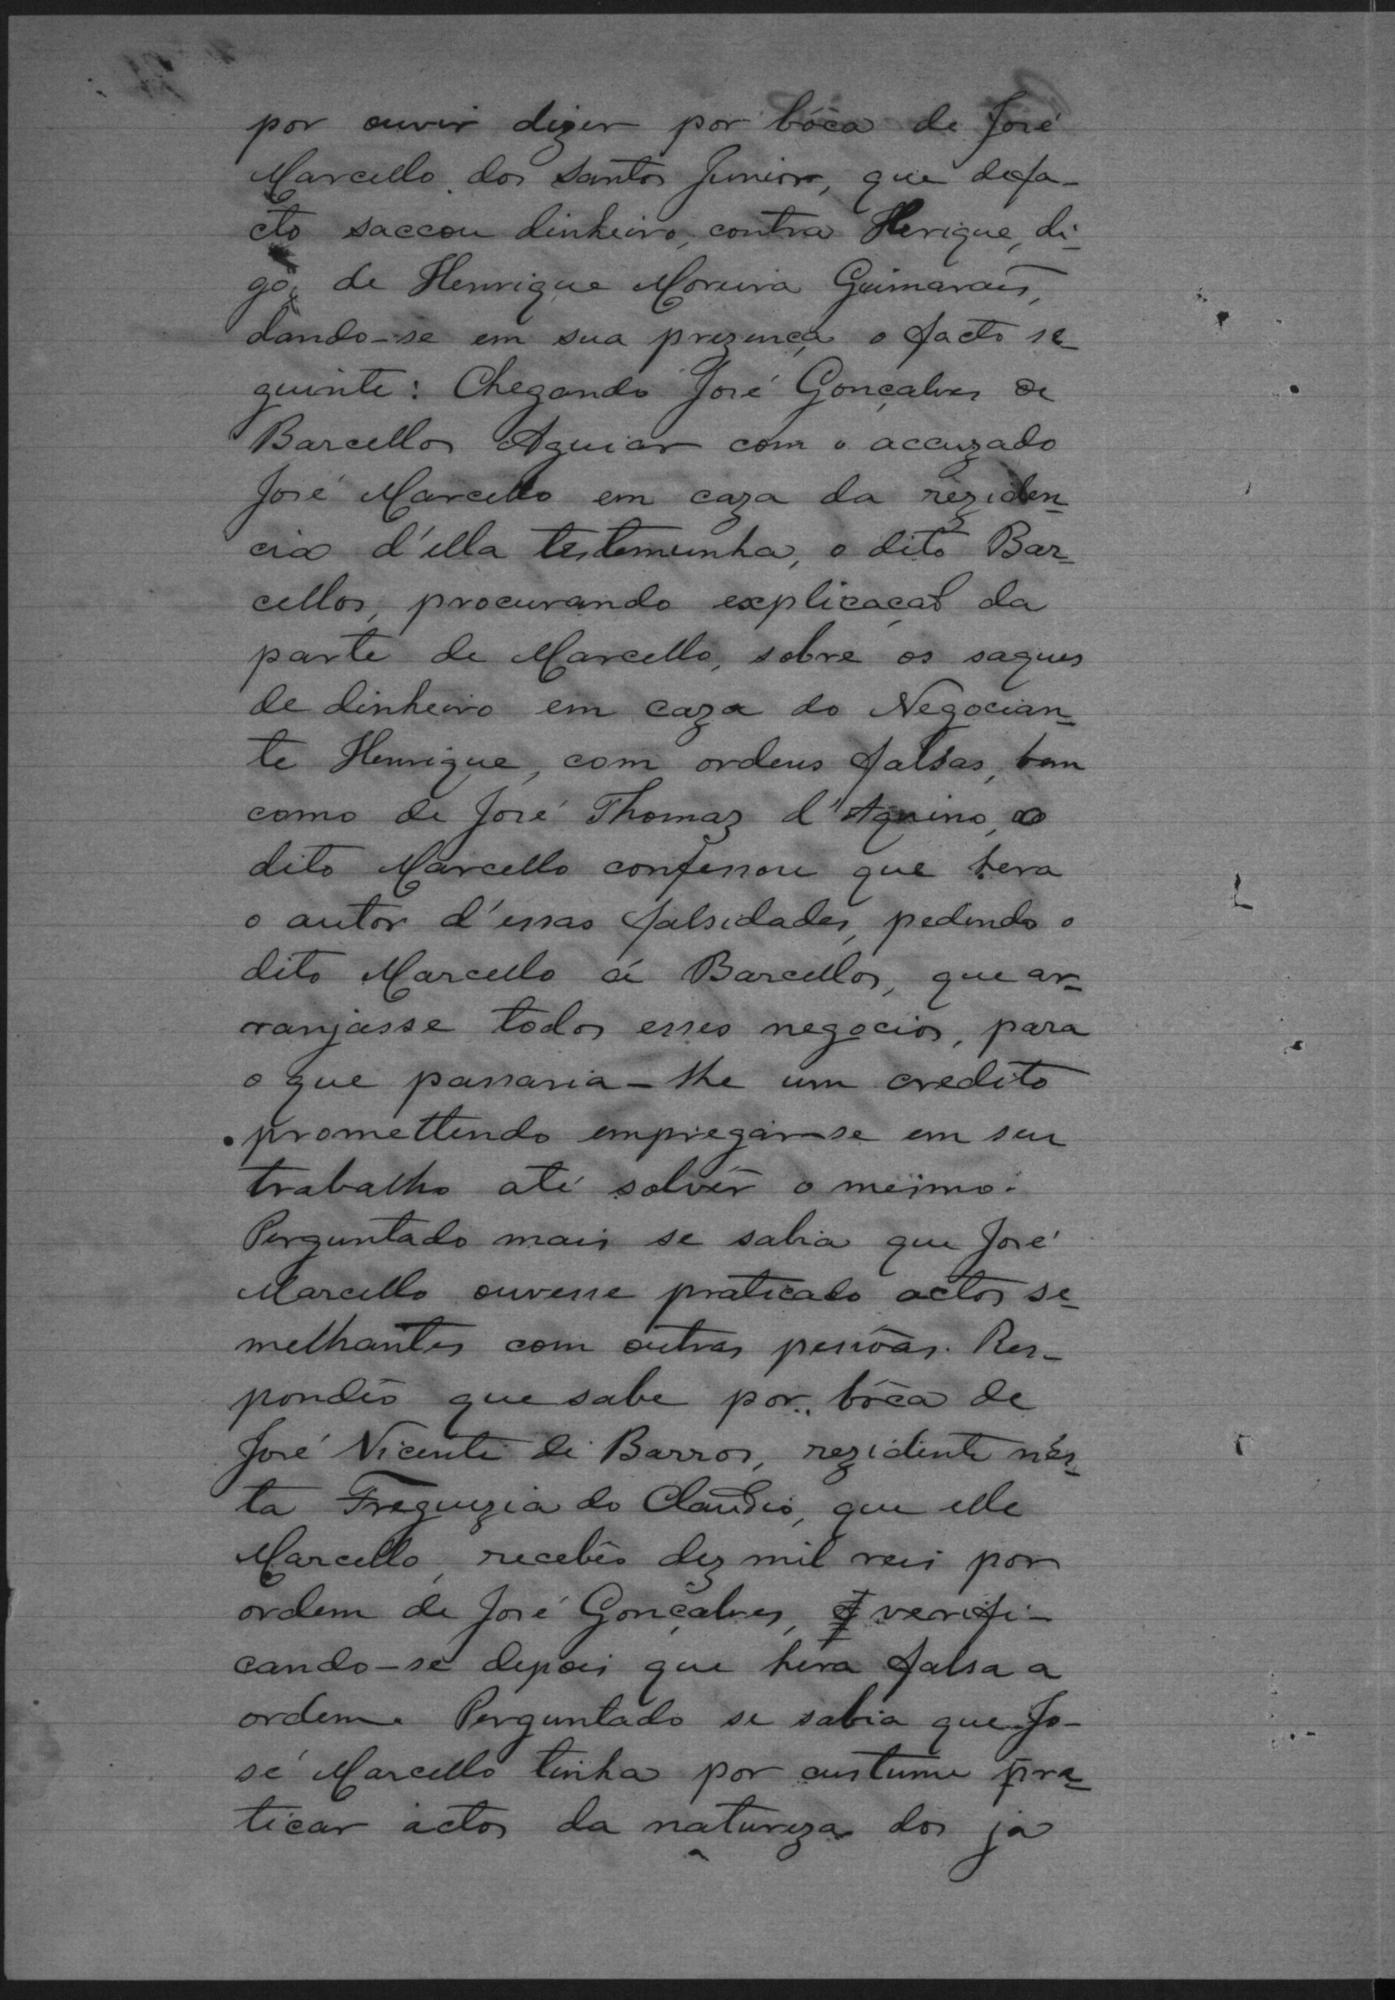 por ouvir dizer por bôca de José
Marcello dos Santos Junior, que defa-
cto saccou dinheiro, contra Herique, di-
go, de Henrique Moreira Guimaraēs,
dando-se em sua prezença o facto se-
guinte: Chegando José Gonçalves de
Barcellos Aguiar com o accuzado
José Marcello em caza da reziden-
cia d'ella testemunha, o dito Bar-
cellos, procurando explicaçaõ da
parte de Marcello, sobre os saques
de dinheiro em caza do Negocian-
te Henrique, com ordens falsas, bem
como de José Thomaz d'Aquino, o
dito Marcello confessou que hera
o autor d'essas falsidades, pedindo o
dito Marcello á Barcellos, que ar-
ranjasse todos esses negocios, para
o que passaria-lhe um credito
promettendo empregar-se em seu
trabalho até solvêr o mesmo.
Perguntado mais se sabia que José
Marcello ouvesse praticado actos se-
melhantes com outras pessôas. Res-
pondêo que sabe por bôca de
José Vicente de Barros, rezidente nés-
ta Freguezia do Claudio, que elle
Marcello, recebêo dez mil reis por
ordem de José Gonçalves, verifi-
cando-se depois que hera falsa a
ordem. Perguntado se sabia que Jo-
sé Marcello tinha por custume pra-
ticar actos da natureza dos já